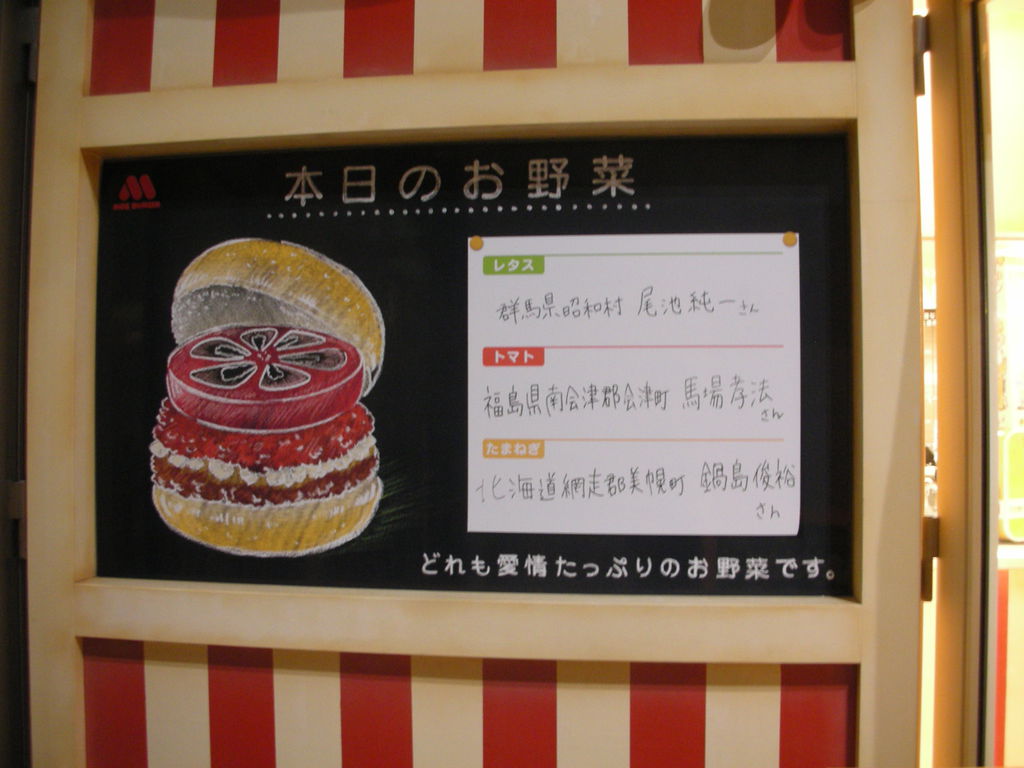 本日のお野菜
MOS BURGER
レタス
群馬県昭和村 尾池純一さん
トマト
福島県南会津郡会津町 馬場孝法
さん
たまねぎ
北海道網走郡美幌町 鍋島俊裕
さん
どれも愛情たっぷりのお野菜です。